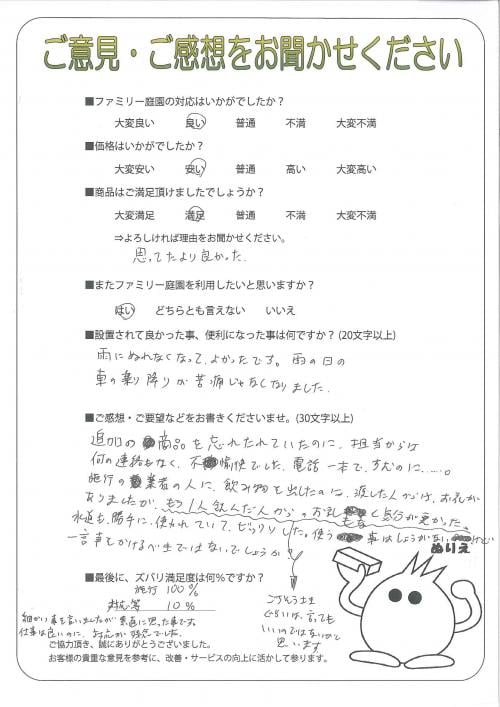 ご意見・ご感想をお聞かせください
■ファミリー庭園の対応はいかがでしたか？
大変良い 良い 普通 不満 大変不満
■価格はいかがでしたか？
大変安い 安い 普通 高い 大変高い
■商品はご満足頂けましたでしょうか？
大変満足 満足 普通 不満 大変不満
⇒よろしければ理由をお聞かせください。
思ってたより良かった.
■またファミリー庭園を利用したいと思いますか？
はい どちらとも言えない いいえ
■設置されて良かった事、便利になった事は何ですか？(20文字以上)
雨にぬれなくなって、よかったです。雨の日の
車の乗り降りが苦痛じゃなくなりました.
■ご感想・ご要望などをお書きくださいませ。(30文字以上)
追加の商品を忘れられていたのに、担当からは
何の連絡もなく、不愉快でした、電話一本で、すむのに……。
施行の業者の人に、飲み物を出したのに、渡した人からは、お礼が
ありましたが、もう1人飲んだ人からのお礼もなく気分が悪かった、
水道も、勝手に、使われていて、ビックリした。使う事はしょうがないけど
一言声をかけるべきではないでしょうか
ぬりえ
■最後に、ズバリ満足度は何％ですか？
施行 100％
対応等 10％
ごちそう
ぐらいは、言っても
いいのではないかと
思います
細かい事を言いましたが素直に思った事です。
仕事は良いのに、対応が残念でした。
ご協力頂き、誠にありがとうございました。
お客様の貴重な意見を参考に、改善・サービスの向上に活かして参ります。